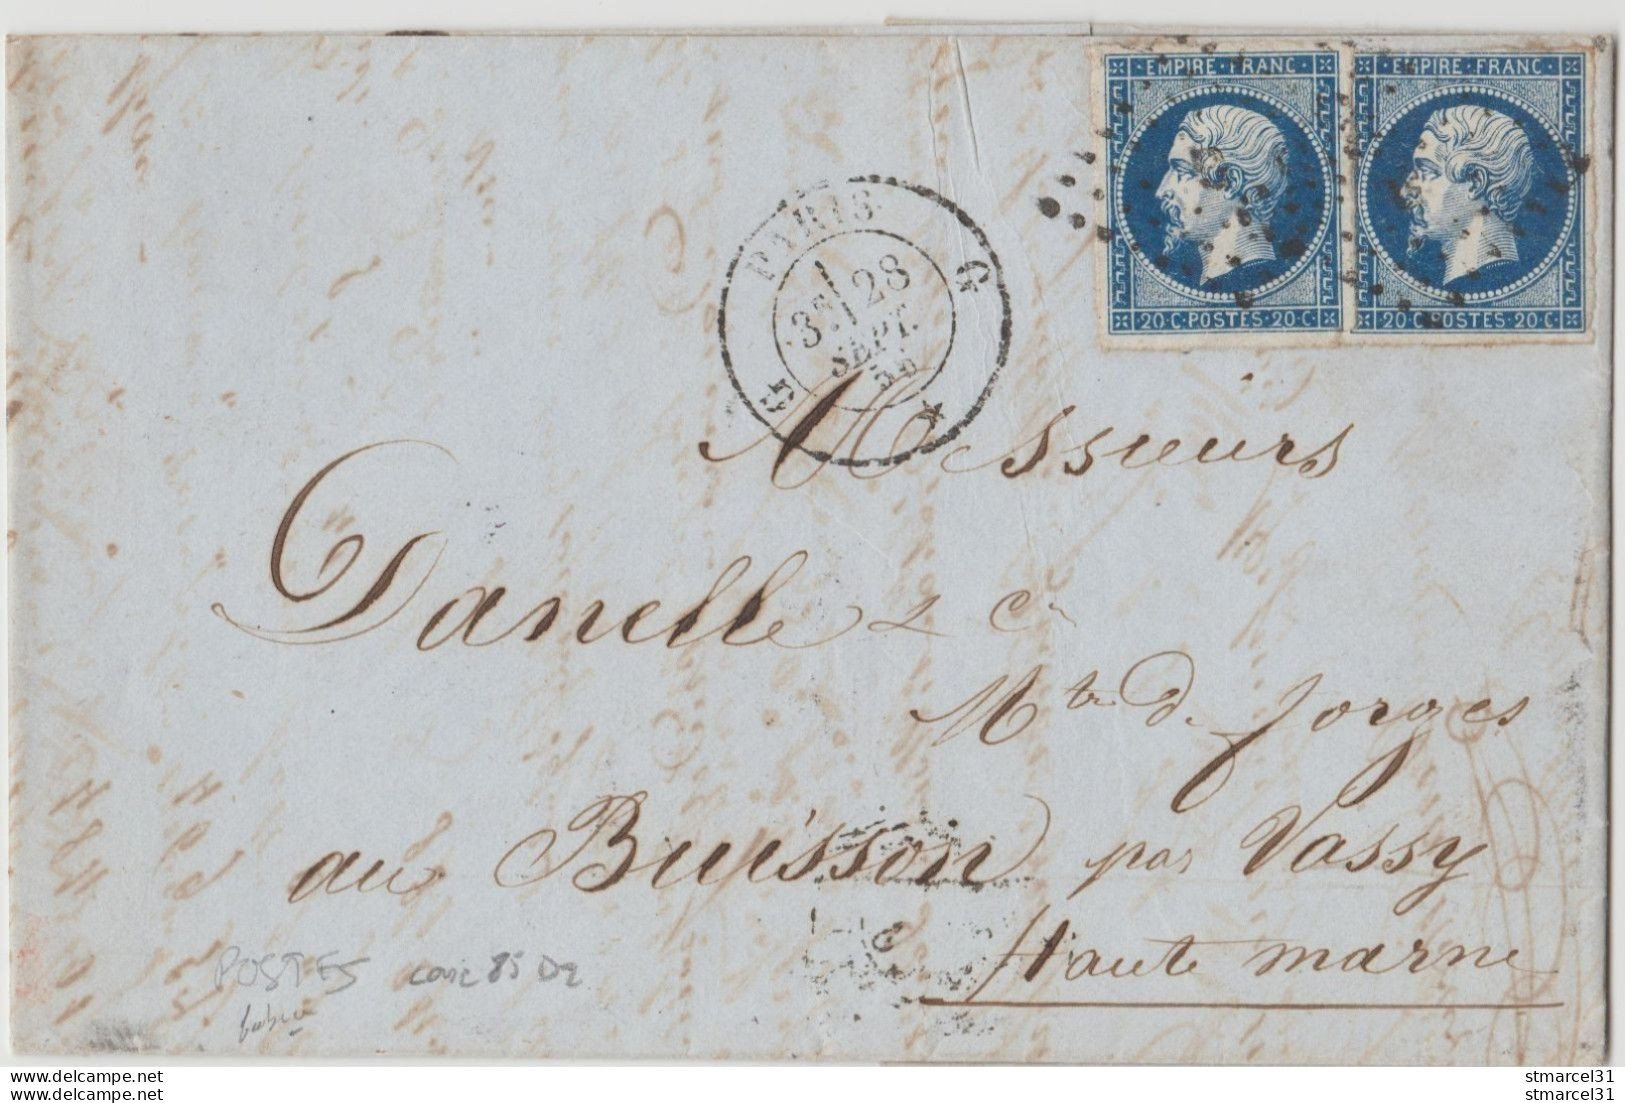 EMPIRE·FRANC·
EMPIRE·FRANC·
20·C·POSTES·20·C·
20·C·POSTES·20·C·
PARIS
G
3E 28
SEPT.
G
Messieurs
Danelle & Cie
Mtre de forges
au Buisson par Vassy
Haute marne
POSTES case 85 D2
www.delcampe.net
www.delcampe.net
stmarcel31
stmarcel31